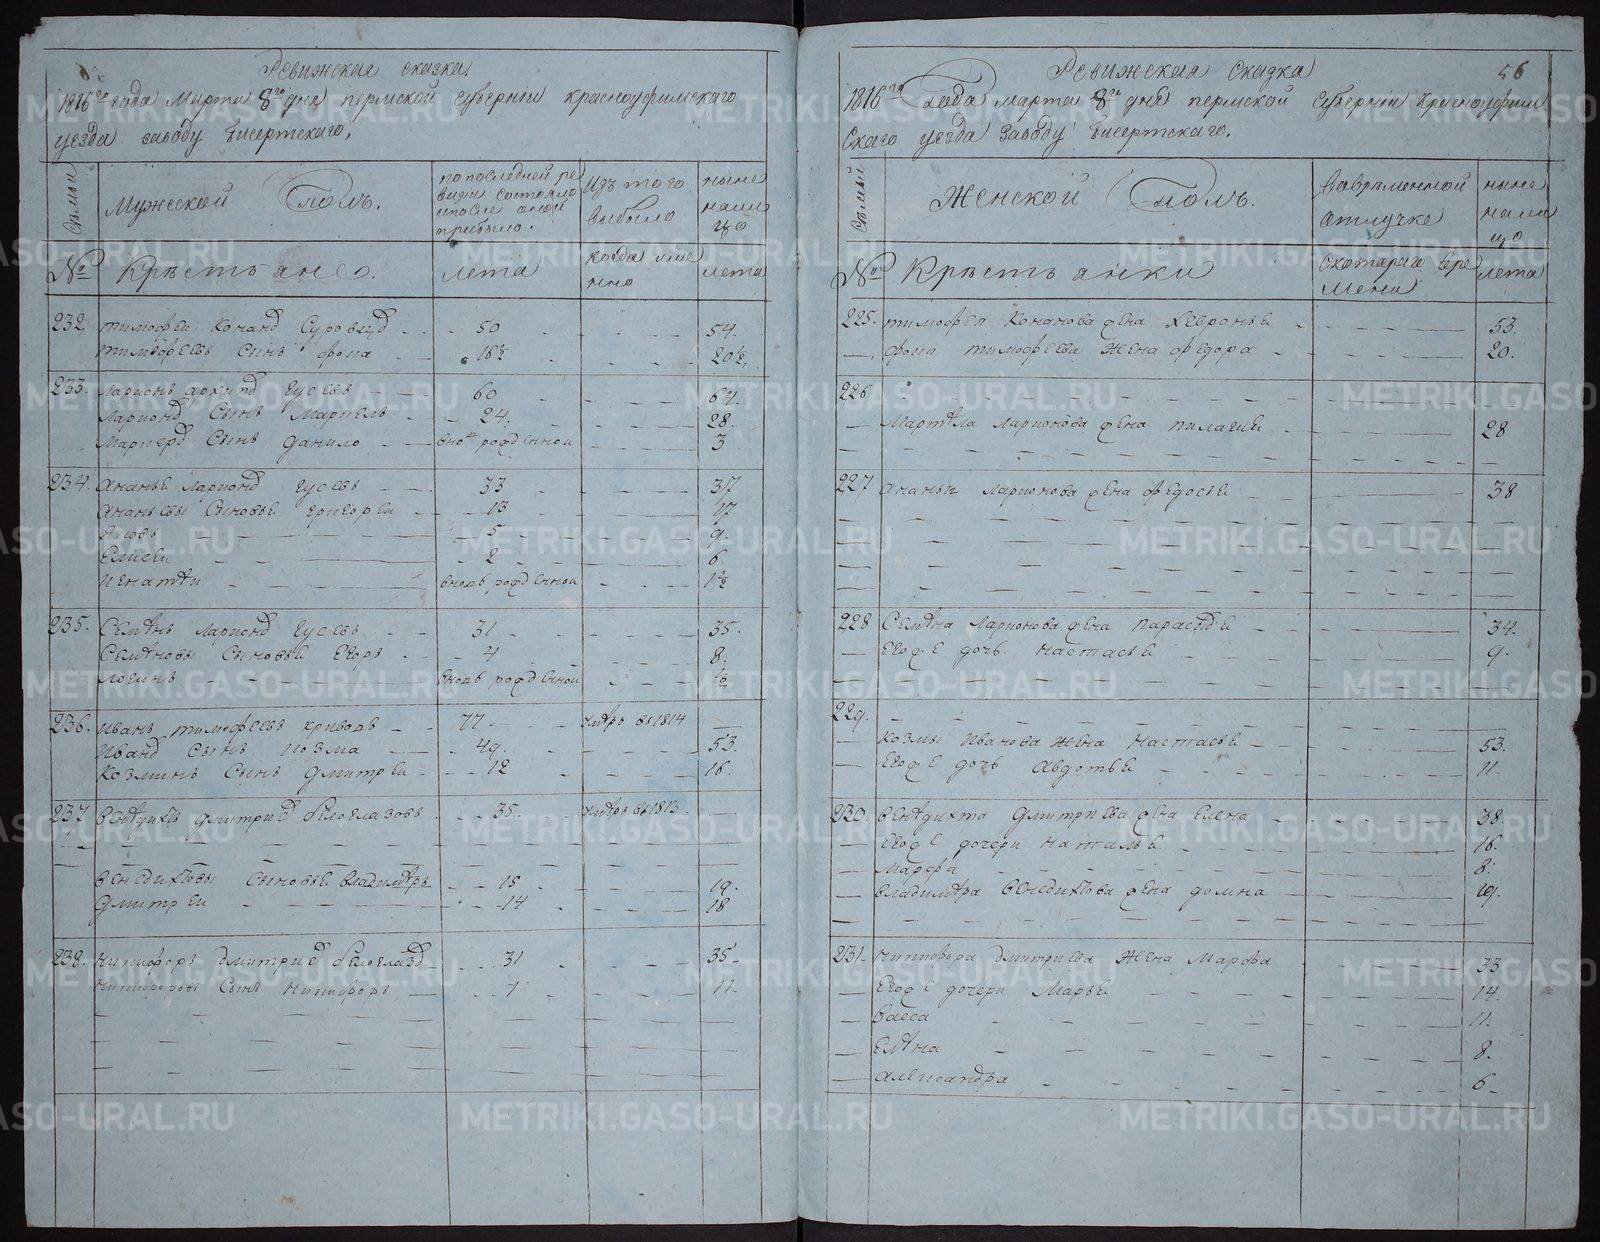 Ревижская сказка.
1816го года марта 8го дня пермской губернии красноуфимскаго
уезда заводу бисертскаго.
Семьи
Мужеской Полъ.
по последней ре
визии состояло
и после оной
прибыло.
Изъ того
выбыло
ныне
нали
цо
№
Крестьянсо.
лета
когда име
нно
лета
232. тимофеи Конанд Суровцд 50 54.
тимофеевъ Синъ фома 16½ 20½
233. ларионъ архипд гусевъ 60 64.
лариond Сынъ Мартелъ 24. 28.
Сынъ данило вно рожденнои 3
234. Ананеи лариond гусевъ 33 37
Ананьевы Сыновьи григореи 13 17
Яковъ 5 9
Елисеи 2 6
игнатеи вновь рожденнои 1½
235. Семенъ лариond гусевъ 31 35.
Семеновы Сыновьи Егоръ 4 8.
логинъ вновь рожденнои ½
236. Иванъ тимофеевъ 77 умеръ въ 1814
Иванд Сынъ козма 49. 53.
козминъ Сынъ дмитреи 12 16.
237 венедихтъ дмитриев белоглазовъ 35. умеръ въ 1813
венедихтовы Сыновьи владимеръ 15 19.
дмитреи 14 18
238. никифоръ дмитриев белоглазд 31 35
никифоровъ Сынъ никифоръ 7 11
Ревижская Сказка
56
1816го Года марта 8го дня пермской губернии Красноуфим
Скаго уезда заводу бисертскаго.
Семьи
Женской Полъ.
Вовременной
отлучке
ныне
нали
цо
№
Крестьянки
скотораго вре
мени
лета
225. тимофея Конанова жена хевронья 53.
фомы тимофеева жена федора 20.
226
Мартела ларионова жена пилагия 28
227 Ананьи ларионова жена федосья 38
228 Семена ларионова жена парасковья 34.
Егоже дочь настасья 9.
229.
козмы Иванова жена настасья 53.
Егоже дочь авдотья 11.
230. венедихта дмитриева жена Елена 38.
Егоже дочери наталья 16.
марфа 8.
владимера венедихтова жена домна 19.
231. никифора дмитриева жена марфа 33
Егоже дочери Марья 14.
васса 11.
Елена 8.
александра 6